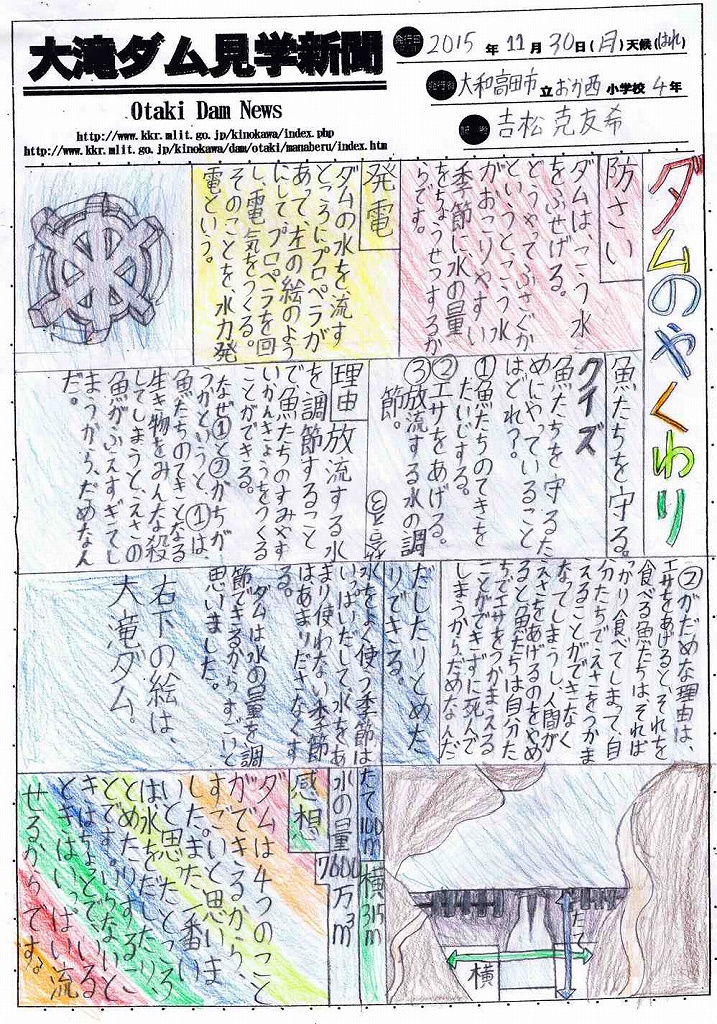 大滝ダム見学新聞
Otaki Dam News
http://www.kkr.mlit.go.jp/kinokawa/index.php
http://www.kkr.mlit.go.jp/kinokawa/dam/otaki/manaberu/index.htm
発行日 2015年11月30日(月)天候(はれ)
発行者 大和高田市立 小学校4年
ダムのやくわり
防さい
ダムはこう水
をふせげる。
どうやってふさぐか
というとこう水
がおこりやすい
季節に、水の量
をちょうせつするか
らです。
発電
ダムの水を流す
ところにプロペラが
あって、左の絵のよう
にして、プロペラを回
し、電気をつくる。
そのことを、水力発
電という。
魚たちを守る。
クイズ
魚たちを守るた
めにやっていること
はどれ?。
①魚たちのてきを
たいじする。
②エサをあげる。
③放流する水の調
節。
理由 放流する水
を調節すること
で、魚たちのすみやす
いかんきょうをつくる
ことができる。
なぜ①と②がちが
うかというと、①は、
魚たちのてきとなる
生き物をみんな殺
してしまうと、えさの
魚がふえすぎてし
まうから、だめなん
だ。
②がだめな理由は、
エサをあげると、それを
食べる魚たちは、そればっ
かり食べてしまって、自
分たちでえさをつかま
えることができなく
なってしまうし、人間が
えさをあげるのをやめ
ると魚たちは自分た
ちでエサをつかまえる
ことができずに死んで
しまうからだめなんだ
だしたりとめた
りできる。
水をよく使う季節は
いっぱいだして、水をあ
まり使わない季節
はあまりださなくす
る。
ダムは水の量を調
節できるからすごいと
思いました。
右下の絵は、
大滝ダム。
たて100m
横315m
水の量
7600万m³
たて
横
感想
ダムは4つのこと
ができるから、
すごいと思いま
した。また、一番い
いと思ったところ
は、水をだしたり、
とめたりするこ
とです。いらないと
きはちょっとで、いる
ときはいっぱい流
せるからです。